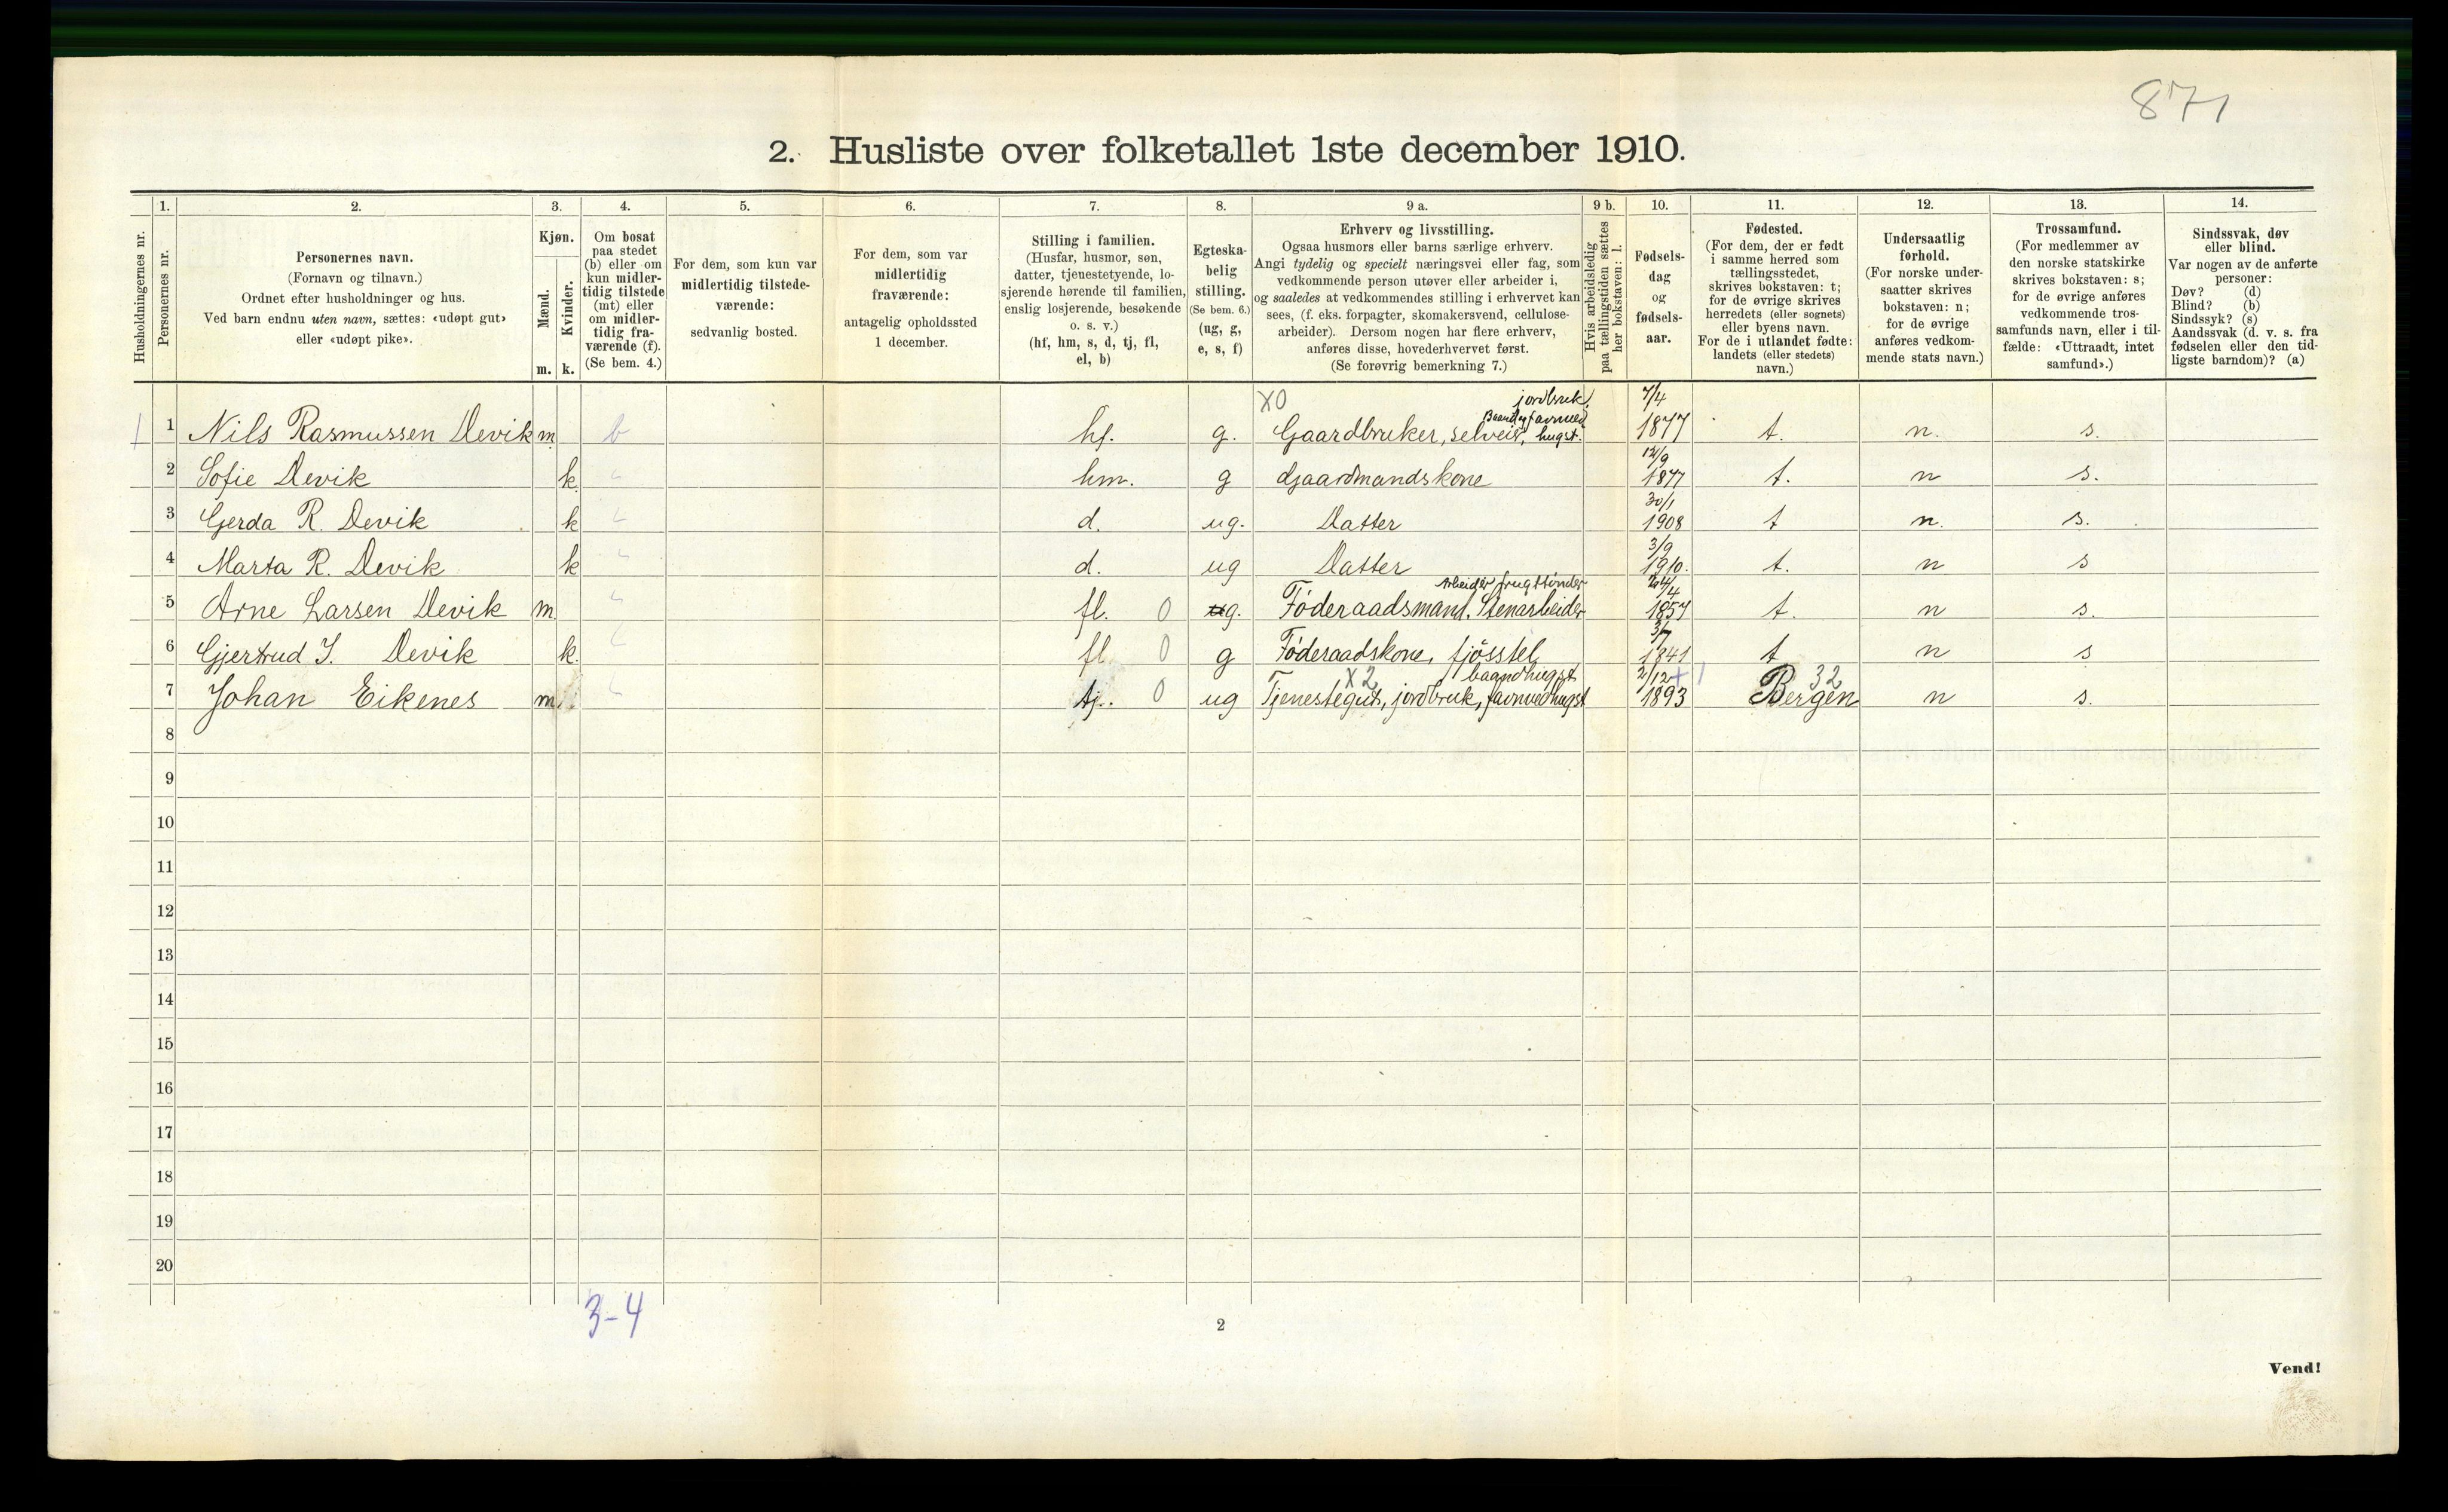 871
2. Husliste over folketallet 1ste december 1910.
Husholdningernes nr.
1. Personernes nr.
2. Personernes navn.
(Fornavn og tilnavn.)
Ordnet efter husholdninger og hus.
Ved barn endnu uten navn, sættes: «udøpt gut»
eller «udøpt pike».
3. Kjøn.
Mænd. m.
Kvinder. k.
4. Om bosat
paa stedet
(b) eller om
kun midler-
tidig tilstede
(mt) eller
om midler-
tidig fra-
værende (f).
(Se bem. 4.)
5. For dem, som kun var
midlertidig tilstede-
værende:
sedvanlig bosted.
6. For dem, som var
midlertidig
fraværende:
antagelig opholdssted
1 december.
7. Stilling i familien.
(Husfar, husmor, søn,
datter, tjenestetyende, lo-
sjerende hørende til familien,
enslig losjerende, besøkende
o. s. v.)
(hf, hm, s, d, tj, fl,
el, b)
8. Egteska-
belig
stilling.
(Se bem. 6.)
(ug, g,
e, s, f)
9 a. Erhverv og livsstilling.
Ogsaa husmors eller barns særlige erhverv.
Angi tydelig og specielt næringsvei eller fag, som
vedkommende person utøver eller arbeider i,
og saaledes at vedkommendes stilling i erhvervet kan
sees, (f. eks. forpagter, skomakersvend, cellulose-
arbeider). Dersom nogen har flere erhverv,
anføres disse, hovederhvervet først.
(Se forøvrig bemerkning 7.)
9 b. Hvis arbeidsledig
paa tællingstiden sættes
her bokstaven: l.
10. Fødsels-
dag
og
fødsels-
aar.
11. Fødested.
(For dem, der er født
i samme herred som
tællingsstedet,
skrives bokstaven: t;
for de øvrige skrives
herredets (eller sognets)
eller byens navn.
For de i utlandet fødte:
landets (eller stedets)
navn.)
12. Undersaatlig
forhold.
(For norske under-
saatter skrives
bokstaven: n;
for de øvrige
anføres vedkom-
mende stats navn.)
13. Trossamfund.
(For medlemmer av
den norske statskirke
skrives bokstaven: s;
for de øvrige anføres
vedkommende tros-
samfunds navn, eller i til-
fælde: «Uttraadt, intet
samfund».)
14. Sindssvak, døv
eller blind.
Var nogen av de anførte
personer:
Døv? (d)
Blind? (b)
Sindssyk? (s)
Aandssvak (d. v. s. fra
fødselen eller den tid-
ligste barndom)? (a)
X0 jordbruk. 7/4
Baand og favnved
1 1 Nils Rasmussen Devik m b hf. g. Gaardbruker, selveir, hugst. 1877 t. n. s.
12/9
2 Sofie Devik k hm. g Gaardmandskone 1877 t. n s.
30/1
3 Gerda R. Devik k d. ug. Datter 1908 t n. s.
3/9
4 Marta R. Devik k d. ug Datter 1910. t. n s
Arbeider frugttønder 24/4
5 Arne Larsen Devik m. fl. 0 g. Føderaadsmand. Stenarbeider 1857 t. n s.
3/7
6 Gjertrud I. Devik k. fl 0 g Føderaadskone, fjösstel 1841 t n s
X2 baandhugst 2/12 + 1 32
7 Johan Eikenes m. tj. 0 ug Tjenestegut, jordbruk, favnvedhugst 1893 Bergen n s.
8
9
10
11
12
13
14
15
16
17
18
19
20
3-4
2
Vend!